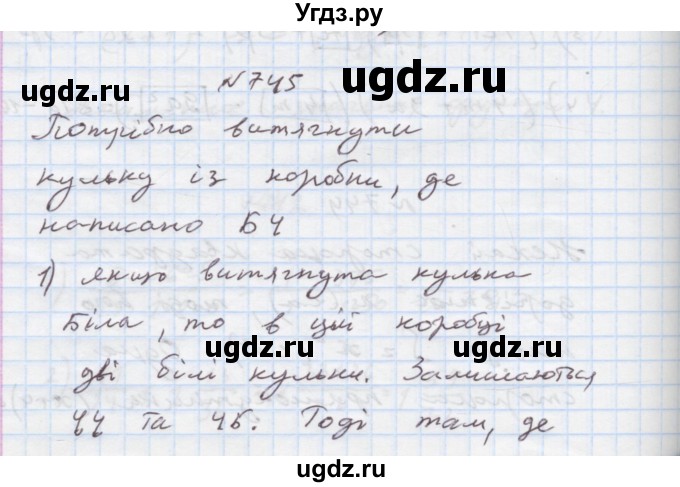 Угдз.ру
№745
Потрібно витягнути
кульку із коробки, де
написано БЧ
1) якщо витягнута кулька
біла, то в цій коробці
дві білі кульки. Залишаються
ЧЧ та ЧБ. Тоді там, де
ugdz.ru
ugdz.ru
ugdz.ru
ugdz.ru
ugdz.ru